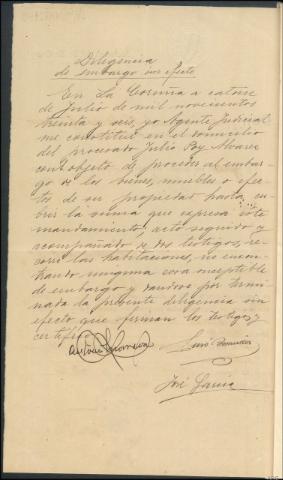 Diligencia
de embargo sin efecto
En La Coruña a catorce
de Julio de mil novecientos
treinta y seis, yo Agente Judicial
me constituí en el domicilio
del procesado Julio Rey Alvarez
con objeto de proceder al embar-
go de los bienes, muebles o efec-
tos de su propiedad hasta cu-
brir la suma que expresa este
mandamiento; acto seguido y
acompañado de dos testigos, re-
corrí las habitaciones, no encon-
trando ninguna cosa susceptible
de embargo y dándose por termi-
nada la presente diligencia sin
efecto que firman los testigos y
certifico
José García